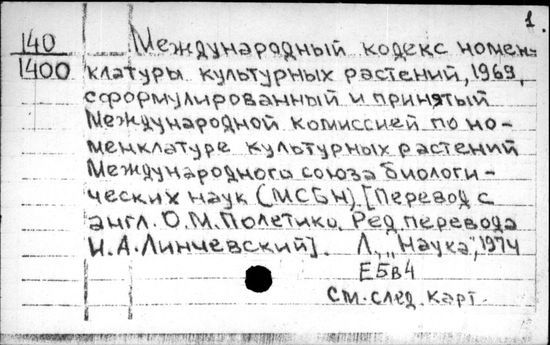 1.
140 Международный кодекс номен-
1400 клатуры культурных растений, 1969,
сформулированный и принятый
Международной комиссией по но-
менклатуре культурных растений
Международного союза биологи-
ческих наук (МСБН). [Перевод с
англ. О.М. Полетико. Ред. перевода
И.А. Линчевский]. Л., "Наука", 1974
Е5в4
См. след. карт.